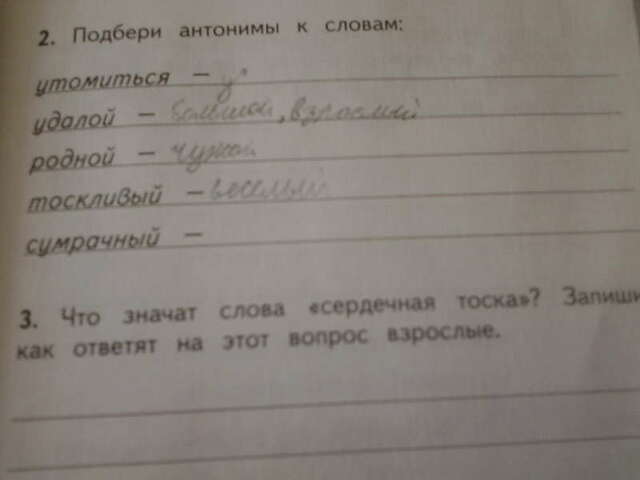 2. Подбери антонимы к словам:
утомиться – у
удалой – большой, взрослый
родной – чужой
тоскливый – веселый
сумрачный –
3. Что значат слова «сердечная тоска»? Запиши
как ответят на этот вопрос взрослые.